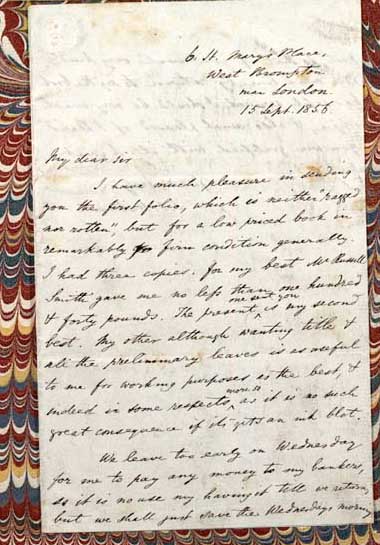 6. St. Mary's Place,
West Brompton
near London
15 Sept. 1856
My dear Sir
I have much pleasure in sending
you the first folio, which is neither "ragged
nor rotten", but for a low priced book in
remarkably firm condition generally.
I had three copies. For my best Mr Russell
Smith gave me no less than one hundred
& forty pounds. The present one sent you is my second
best. My other although wanting title &
all the preliminary leaves is as useful
to me for working purposes as the best, &
indeed in some respects more so as it is no such
great consequence if it gets an ink blot.
We leave too early on Wednesday
for me to pay any money to my bankers,
so it is no use my having it till we return,
but we shall just save the Wednesday morning